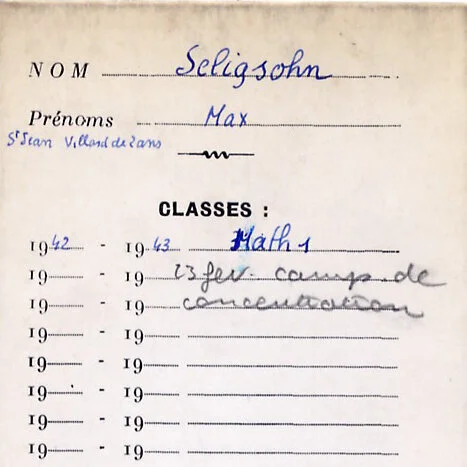 NOM Seligsohn
Prénoms Max
St Jean Villard de Lans
CLASSES :
1942 - 1943 Math 1
19 - 19 23 fev. camp de
19 - 19 concentration
19 - 19
19 - 19
19 - 19
19 - 19
19 - 19